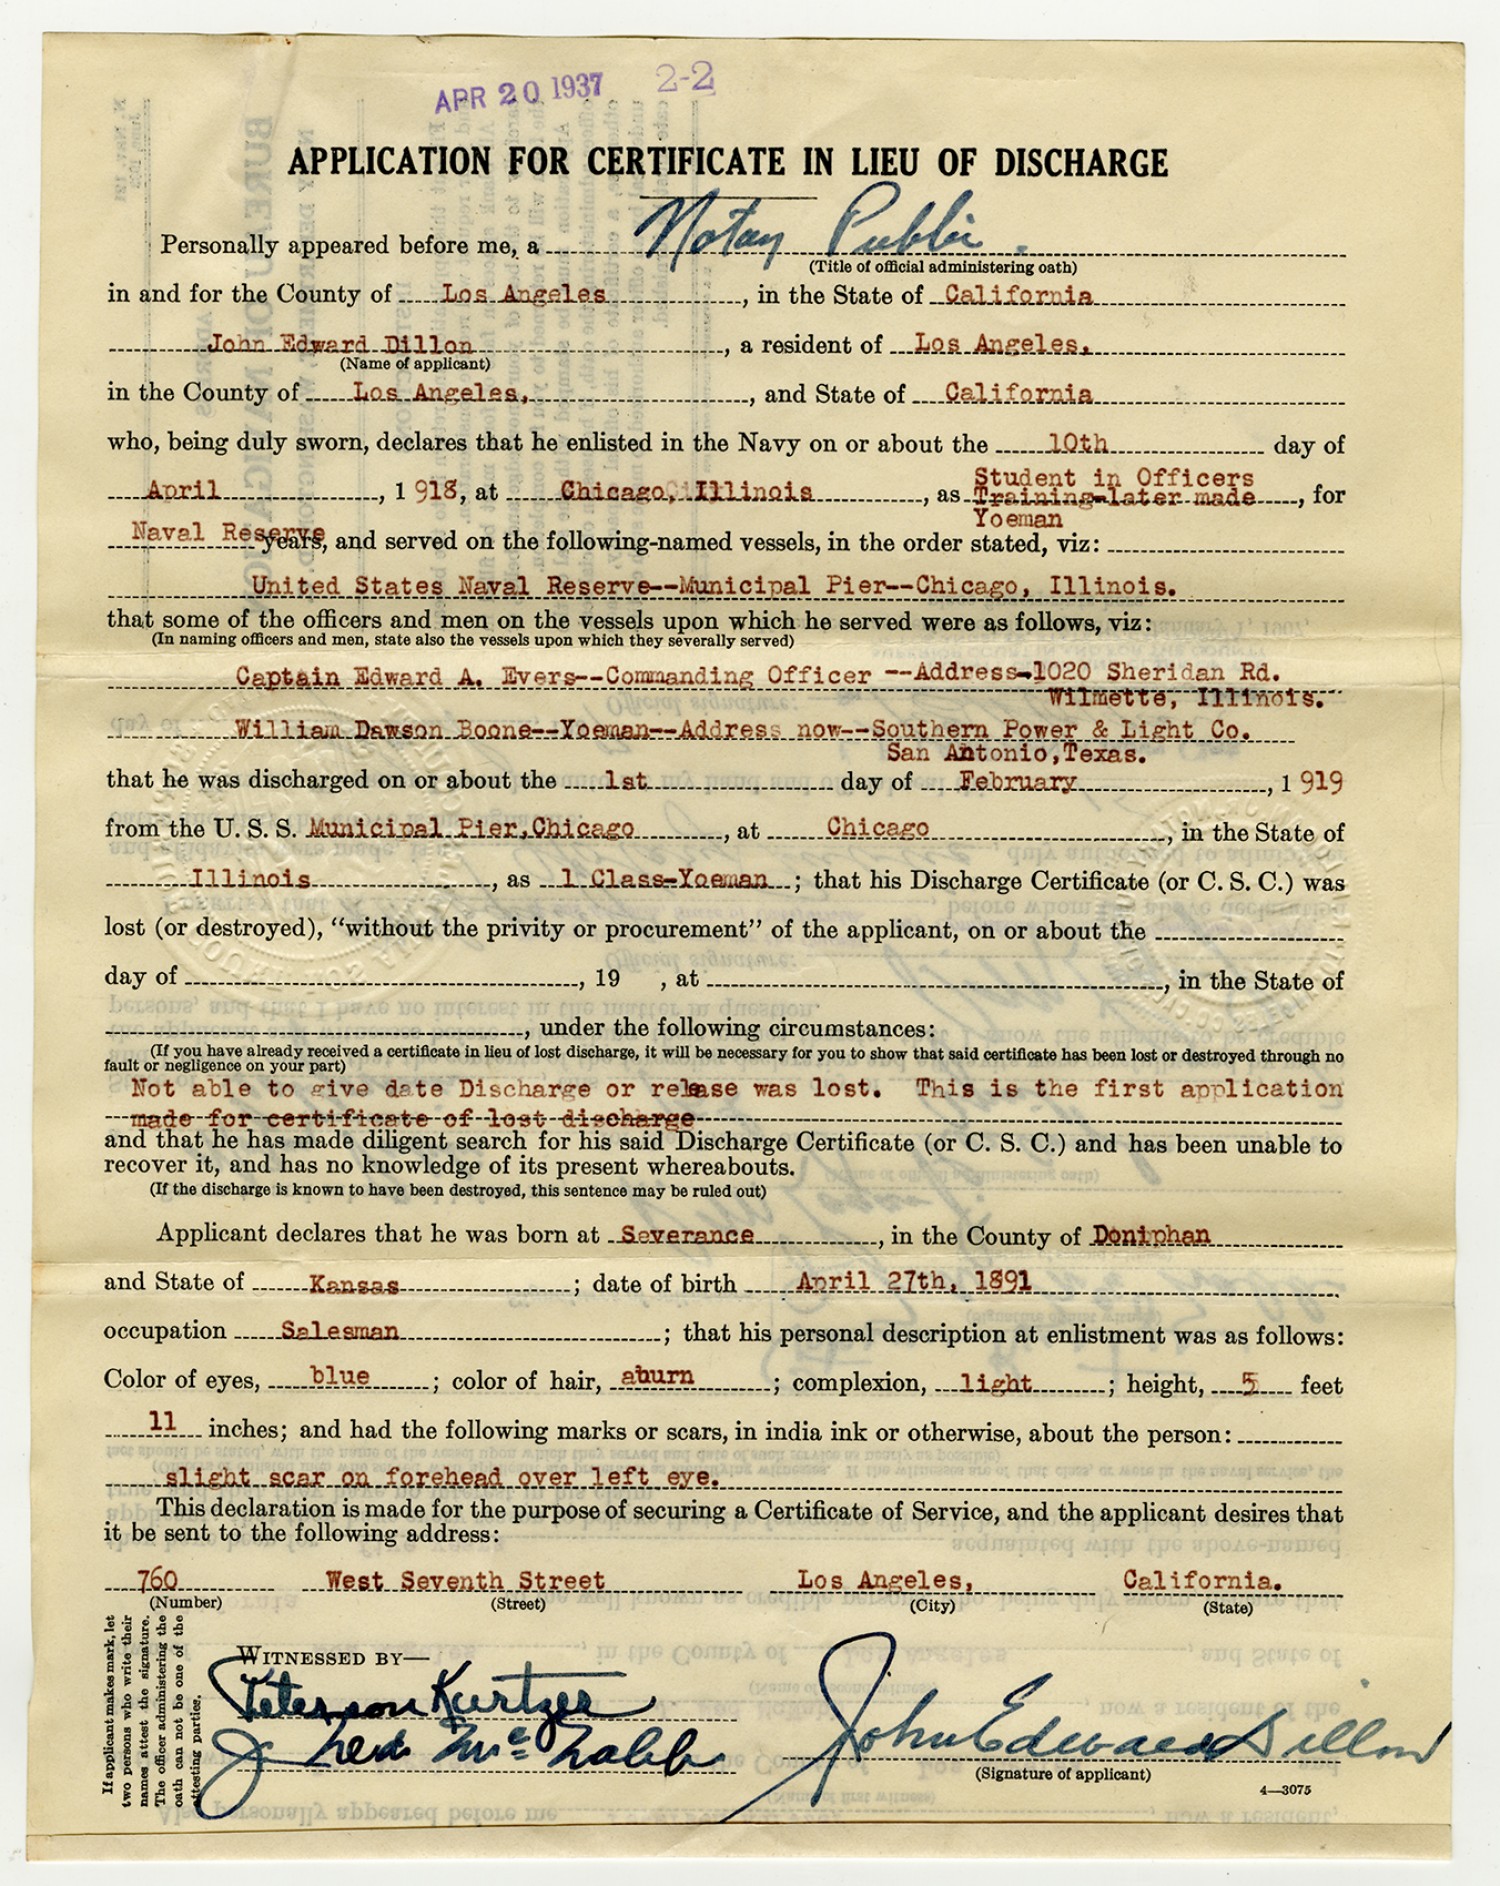 APR 20 1937 2-2
APPLICATION FOR CERTIFICATE IN LIEU OF DISCHARGE
Personally appeared before me, a Notary Public.
(Title of official administering oath)
in and for the County of Los Angeles, in the State of California
John Edward Dillon, a resident of Los Angeles,
(Name of applicant)
in the County of Los Angeles, and State of California
who, being duly sworn, declares that he enlisted in the Navy on or about the 10th day of
Student in Officers
April, 1918, at Chicago, Illinois, as Training-later made, for
Yoeman
Naval Reserve years, and served on the following-named vessels, in the order stated, viz:
United States Naval Reserve--Municipal Pier--Chicago, Illinois.
that some of the officers and men on the vessels upon which he served were as follows, viz:
(In naming officers and men, state also the vessels upon which they severally served)
Captain Edward A. Evers--Commanding Officer --Address-1020 Sheridan Rd.
Wilmette, Illinois.
William Dawson Boone--Yoeman--Address now--Southern Power & Light Co.
San Antonio, Texas.
that he was discharged on or about the 1st day of February, 1919
from the U. S. S. Municipal Pier, Chicago, at Chicago, in the State of
Illinois, as 1 Class-Yoeman; that his Discharge Certificate (or C. S. C.) was
lost (or destroyed), "without the privity or procurement" of the applicant, on or about the
day of , 19 , at , in the State of
, under the following circumstances:
(If you have already received a certificate in lieu of lost discharge, it will be necessary for you to show that said certificate has been lost or destroyed through no
fault or negligence on your part)
Not able to give date Discharge or release was lost. This is the first application
made for certificate of lost discharge
and that he has made diligent search for his said Discharge Certificate (or C. S. C.) and has been unable to
recover it, and has no knowledge of its present whereabouts.
(If the discharge is known to have been destroyed, this sentence may be ruled out)
Applicant declares that he was born at Severance, in the County of Doniphan
and State of Kansas; date of birth April 27th, 1891
occupation Salesman; that his personal description at enlistment was as follows:
Color of eyes, blue; color of hair, aburn; complexion, light; height, 5 feet
11 inches; and had the following marks or scars, in india ink or otherwise, about the person:
slight scar on forehead over left eye.
This declaration is made for the purpose of securing a Certificate of Service, and the applicant desires that
it be sent to the following address:
760 West Seventh Street Los Angeles, California.
(Number) (Street) (City) (State)
If applicant makes mark, let
two persons who write their
names attest the signature.
The officer administering the
oath can not be one of the
attesting parties.
WITNESSED BY—
Peterson Kurtzer
J. Ned McNabb
John Edward Dillon
(Signature of applicant)
4—3075